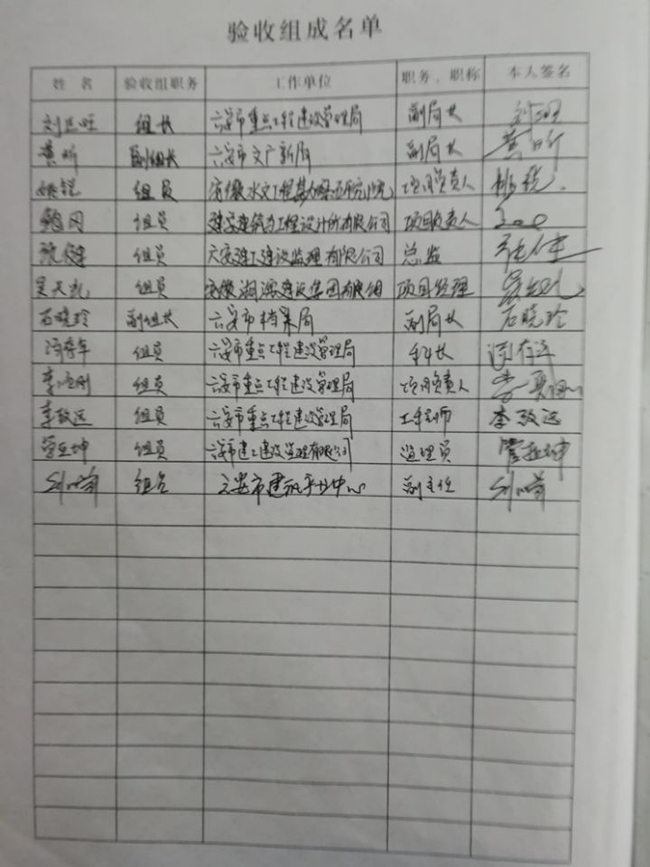 验收组成名单
姓 名 验收组职务 工作单位 职务、职称 本人签名
组长 六安市重点工程建设管理局 副局长
黄昕 副组长 六安市文广新局 副局长 黄昕
姚锐 组员 项目负责人 姚锐
组员 项目负责人
张健 组员 六安建工建设监理有限公司 总监 张健
吴天 组员 安徽湖滨建设集团有限公司 项目经理
石晓玲 副组长 六安市档案局 副局长 石晓玲
组员 六安市重点工程建设管理局 科长
李 组员 六安市重点工程建设管理局 项目负责人 李
李致远 组员 六安市重点工程建设管理局 工程师 李致远
管亚坤 组员 六安市建工建设监理有限公司 监理员 管亚坤
刘 组员 六安市建筑 中心 副主任 刘